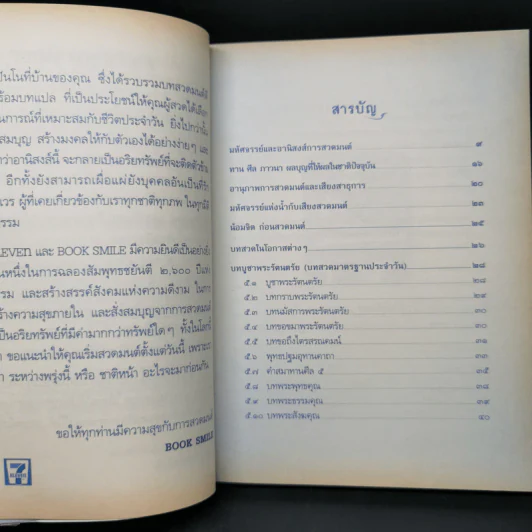 ป็นโนที่บ้านของคุณ ซึ่งได้รวบรวมบทสวดมนต์
ร้อมบทแปล ที่เป็นประโยชน์ให้คุณผู้สวดได้เลือก
นการณ์ที่เหมาะสมกับชีวิตประจำวัน ยิ่งไปกว่านั้น
สมบุญ สร้างมงคลให้กับตัวเองได้อย่างง่ายๆ และ
กว่าอานิสงส์นี้ จะกลายเป็นอริยทรัพย์ที่จะติดตัวข้าม
อีกทั้งยังสามารถเผื่อแผ่ยังบุคคลอันเป็นที่รัก
เวร ผู้ที่เคยเกี่ยวข้องกับเราทุกชาติทุกภพ ในทุกมิติ
รรม
ELEVEn และ BOOK SMILE มีความยินดีเป็นอย่างยิ่ง
นหนึ่งในการฉลองสัมพุทธชยันตี ๒,๖๐๐ ปีแห่ง
รม และสร้างสรรค์สังคมแห่งความดีงาม ในการ
ร้างความสุขภายใน และสั่งสมบุญจากการสวดมนต์
เป็นอริยทรัพย์ที่มีค่ามากกว่าทรัพย์ใดๆ ทั้งในโลกนี้
า ขอแนะนำให้คุณเริ่มสวดมนต์ตั้งแต่วันนี้ เพราะเรา
า ระหว่างพรุ่งนี้ หรือ ชาติหน้า อะไรจะมาก่อนกัน
ขอให้ทุกท่านมีความสุขกับการสวดมนต์
BOOK SMILE
7
ELEVEn
สารบัญ
มหัศจรรย์และอานิสงส์การสวดมนต์ ๙
ทาน ศีล ภาวนา ผลบุญที่ให้ผลในชาติปัจจุบัน ๑๖
อานุภาพการสวดมนต์และเสียงสาธุการ ๒๐
มหัศจรรย์แห่งน้ำกับเสียงสวดมนต์ ๒๓
น้อมจิต ก่อนสวดมนต์ ๒๕
บทสวดในโอกาสต่างๆ ๒๖
บทบูชาพระรัตนตรัย (บทสวดมาตรฐานประจำวัน) ๒๘
๕.๑ บูชาพระรัตนตรัย ๒๘
๕.๒ บทกราบพระรัตนตรัย ๒๙
๕.๓ บทนมัสการพระรัตนตรัย ๓๐
๕.๔ บทขอขมาพระรัตนตรัย ๓๐
๕.๕ บทขอถึงไตรสรณคมน์ ๓๑
๕.๖ พุทธปฐมอุทานคาถา ๓๓
๕.๗ คำสมาทานศีล ๕ ๓๕
๕.๘ บทพระพุทธคุณ ๓๘
๕.๙ บทพระธรรมคุณ ๓๙
๕.๑๐ บทพระสังฆคุณ ๔๐